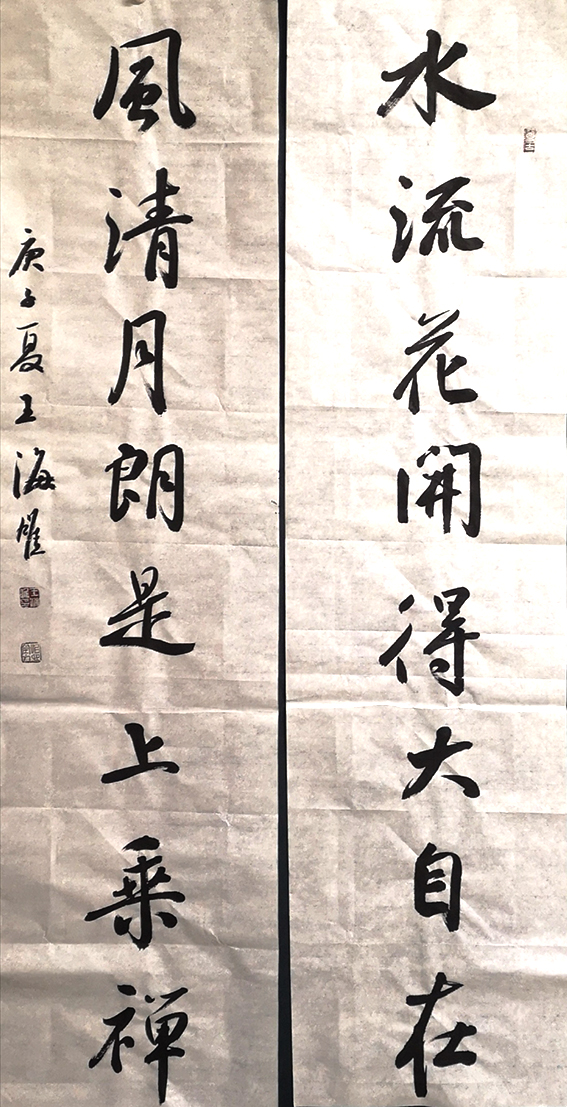 水流花開得大自在
風清月朗是上乘禪
庚子夏王海耀